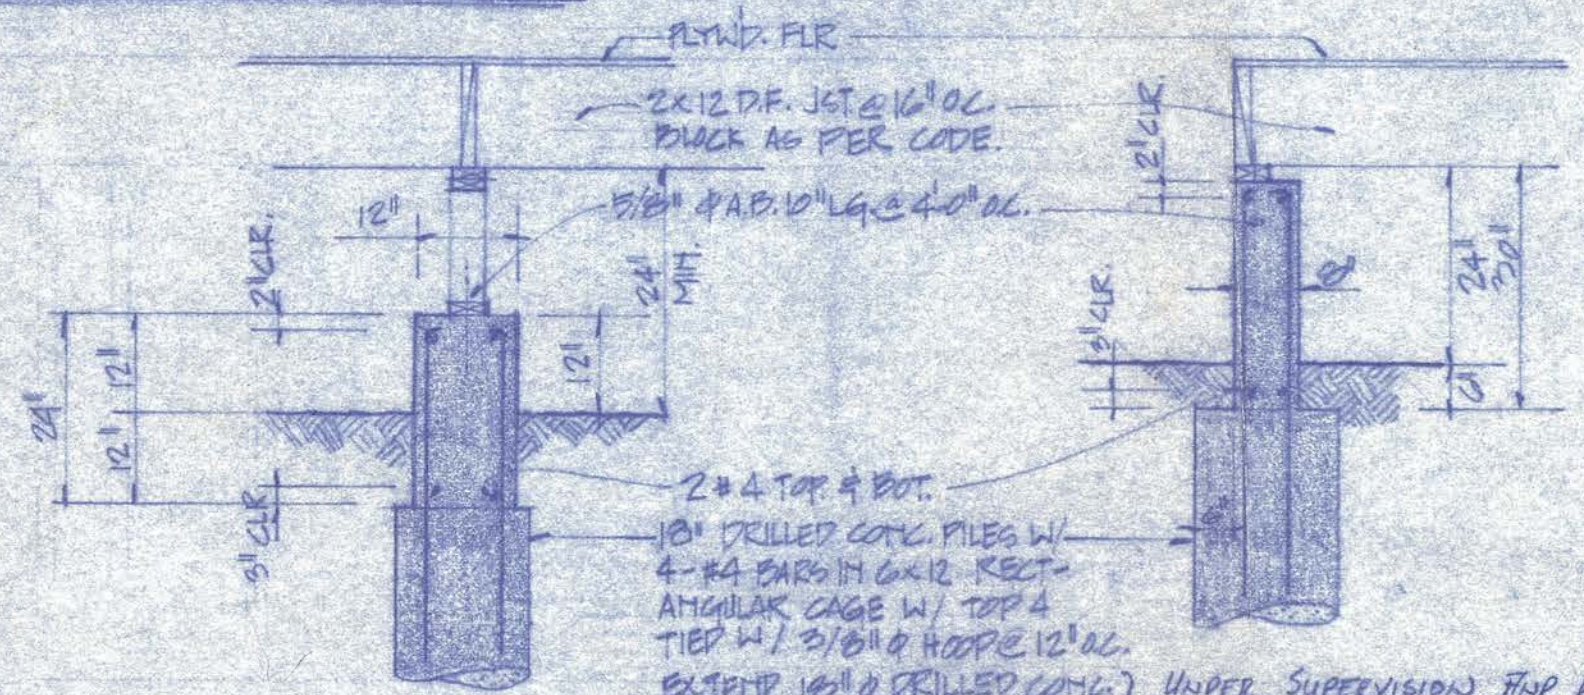 PLYWD. FLR
2x12 D.F. JST. @ 16" O.C.
BLOCK AS PER CODE.
2" CLR.
5/8" φ A.B. 10" LG @ 4'-0" O.C.
12"
2" CLR.
24"
MIN.
24"
30"
8"
3" CLR.
12"
12"
24"
12"
6"
3" CLR
2 #4 TOP & BOT.
18" DRILLED CONC. PILES W/
4-#4 BARS IN 6x12 RECT-
ANGULAR CAGE W/ TOP 4
TIED W/ 3/8" φ HOOP @ 12" O.C.
EXTEND 18" φ DRILLED CONC. ) UNDER SUPERVISION AND